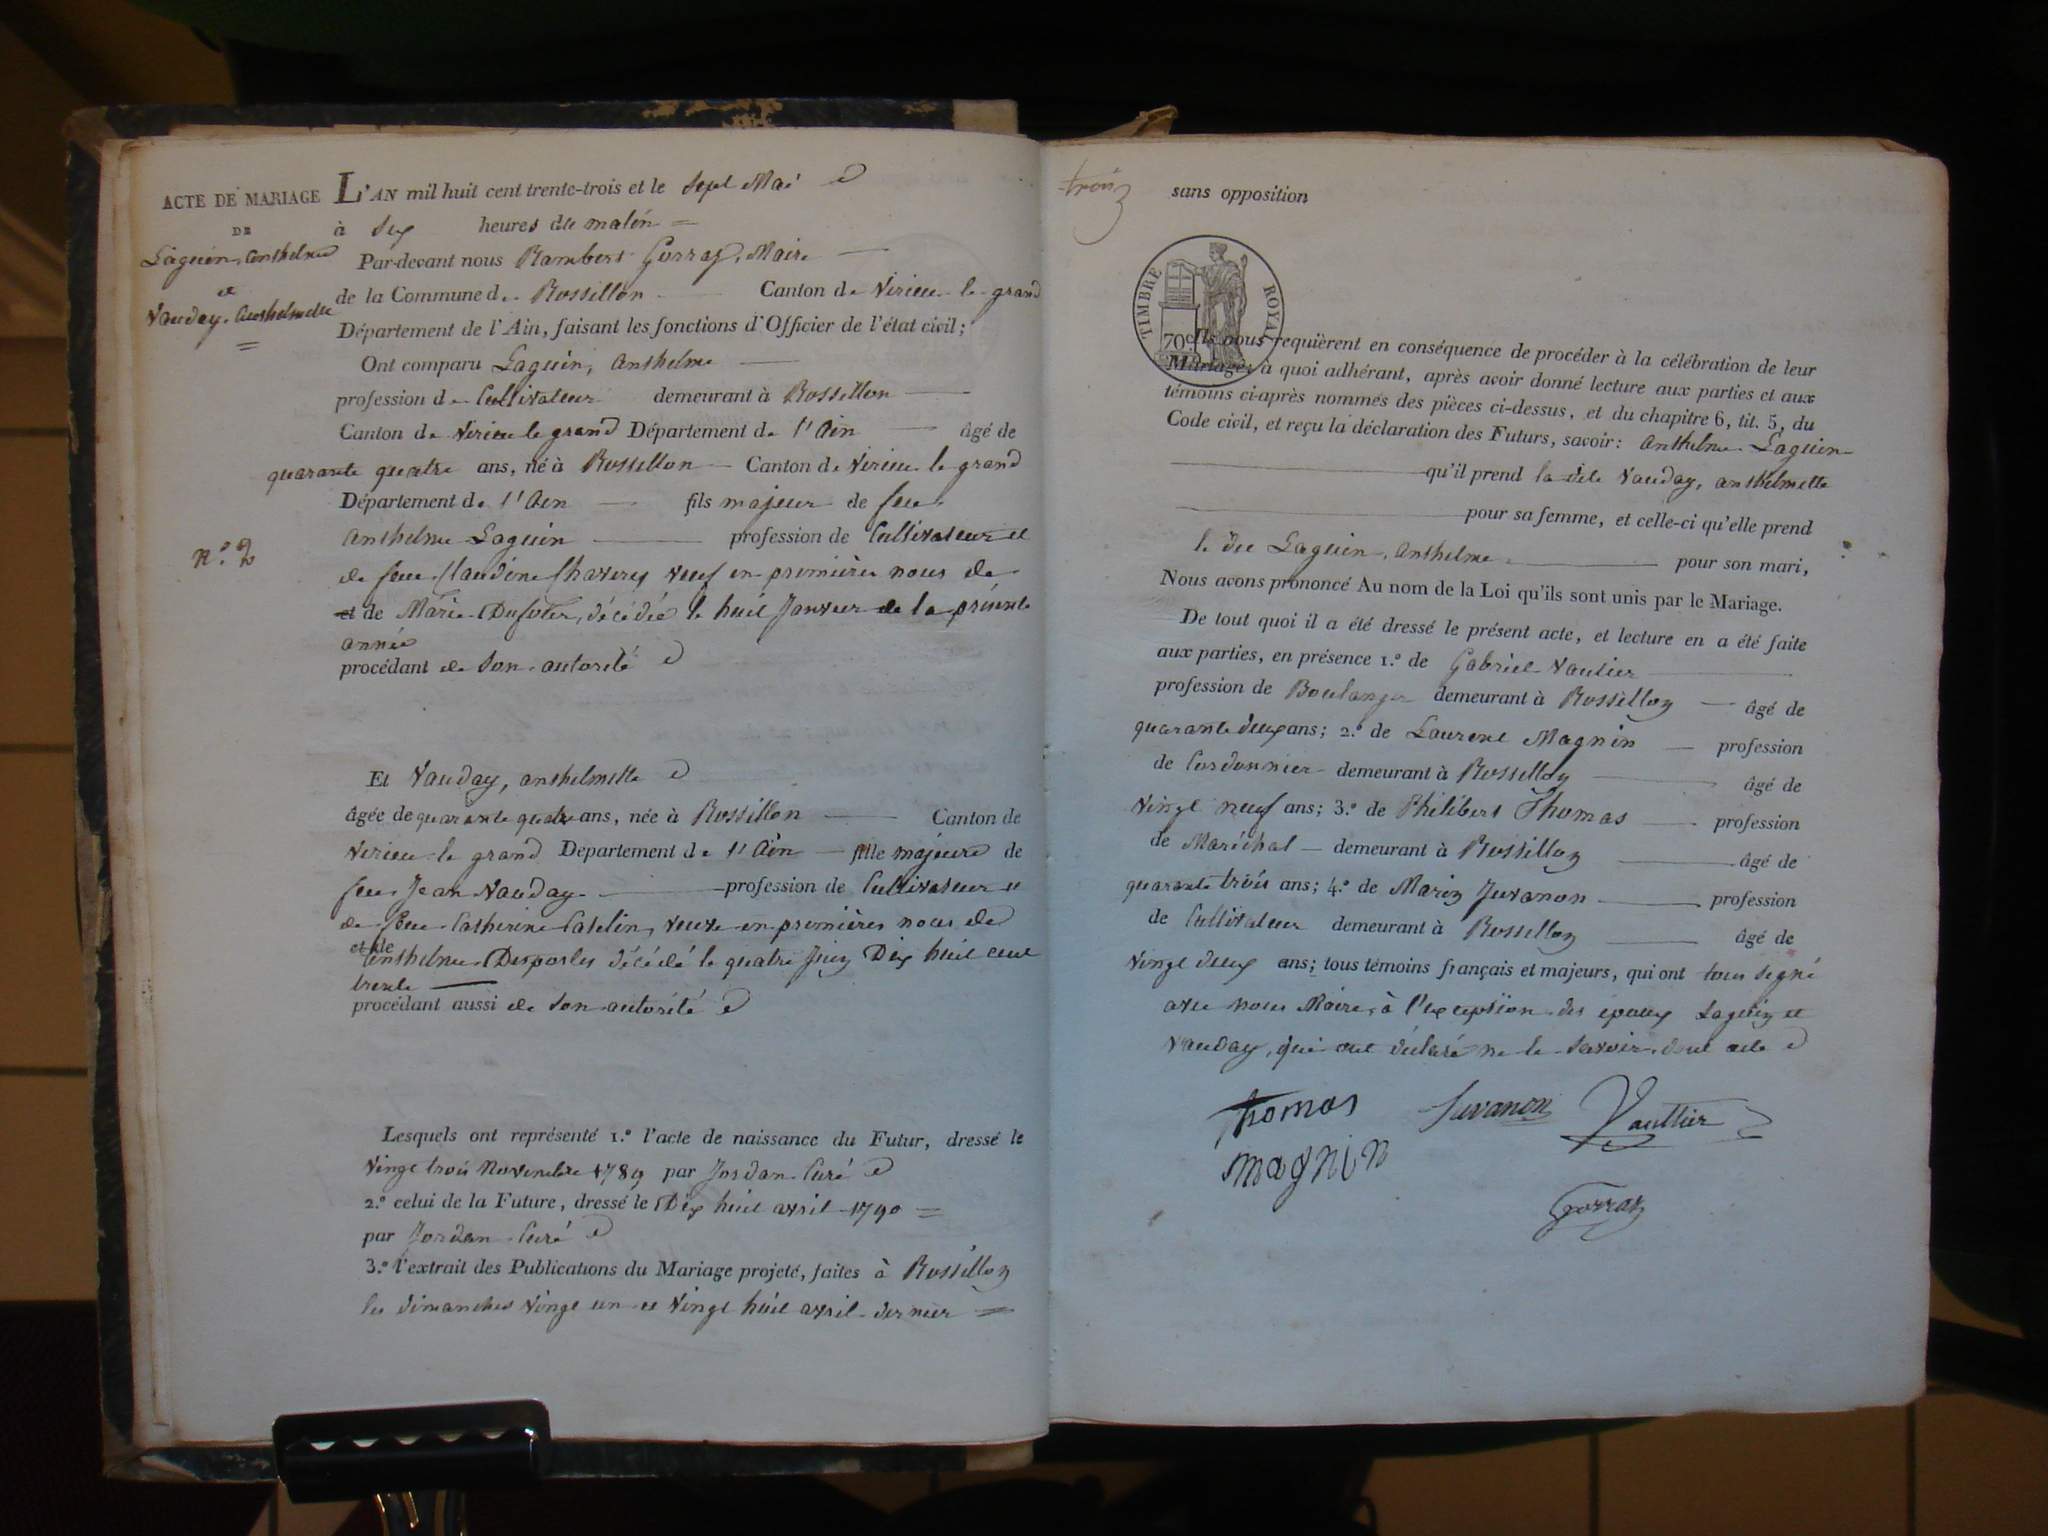 ACTE DE MARIAGE
DE
Laguin, Anthelme
et
Vauday, Anthelmette
n.º 2
L'AN mil huit cent trente-trois et le sept Mai
à six heures du matin
Par-devant nous Rambert Gorraz, Maire
de la Commune de Rossillon Canton de Virieu-le-grand
Département de l'Ain, faisant les fonctions d'Officier de l'état civil;
Ont comparu Laguin, Anthelme
profession de Cultivateur demeurant à Rossillon
Canton de Virieu le grand Département de l'Ain âgé de
quarante quatre ans, né à Rossillon Canton de Virieu le grand
Département de l'Ain fils majeur de feu
Anthelme Laguin profession de Cultivateur et
de feue Claudine Chaverey veuf en premières noces de
et de Marie Dufour, décédée le huit Janvier de la présente
année
procédant de son autorité
Et Vauday, anthelmette
âgée de quarante quatre ans, née à Rossillon Canton de
Virieu-le grand Departement de l'Ain fille majeure de
feu Jean Vauday profession de Cultivateur et
de feue Catherine Catelin, veuve en premières noces de
et de
Anthelme Desportes décédé le quatre Juin Dix huit cent
trente
procédant aussi de son autorité
Lesquels ont représenté 1.º l'acte de naissance du Futur, dressé le
Vingt trois Novembre 1789 par Jordan Curé
2.º celui de la Future, dressé le Dix huit avril 1790
par Jordan Curé
3.º l'extrait des Publications du Mariage projeté, faites à Rossillon
les dimanches Vingt un et Vingt huit avril dernier
trois
sans opposition
TIMBRE ROYAL
70c
Ils nous requièrent en conséquence de procéder à la célébration de leur
Mariage; à quoi adhérant, après avoir donné lecture aux parties et aux
témoins ci-après nommés des pièces ci-dessus, et du chapitre 6, tit. 5, du
Code civil, et reçu la déclaration des Futurs, savoir: Anthelme Laguin
qu'il prend la dite Vauday, anthelmette
pour sa femme, et celle-ci qu'elle prend
le dit Laguin, Anthelme pour son mari,
Nous avons prononcé Au nom de la Loi qu'ils sont unis par le Mariage.
De tout quoi il a été dressé le présent acte, et lecture en a été faite
aux parties, en présence 1.º de Gabriel Vautier
profession de Boulanger demeurant à Rossillon âgé de
quarante deux ans; 2.º de Laurent Magnin profession
de Cordonnier demeurant à Rossillon âgé de
Vingt neuf ans; 3.º de Philibert Thomas profession
de Maréchal demeurant à Rossillon âgé de
quarante trois ans; 4.º de Marin Juvanon profession
de Cultivateur demeurant à Rossillon âgé de
Vingt deux ans; tous témoins français et majeurs, qui ont tous signé
avec nous Maire, à l'exception des époux Laguin et
Vauday, qui ont déclaré ne le savoir. dont acte
Thomas Juvanon Vauttier
magnin
Gorraz